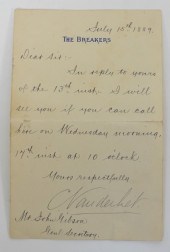 July 15th 1889
THE BREAKERS
Dear Sir:
In reply to yours
of the 13th inst. I will
see you if you can call
here on Wednesday morning,
17th inst. at 10 o'clock
Yours respectfully
C Vanderbilt
Mr. John Wilson
Genl. Secretary.